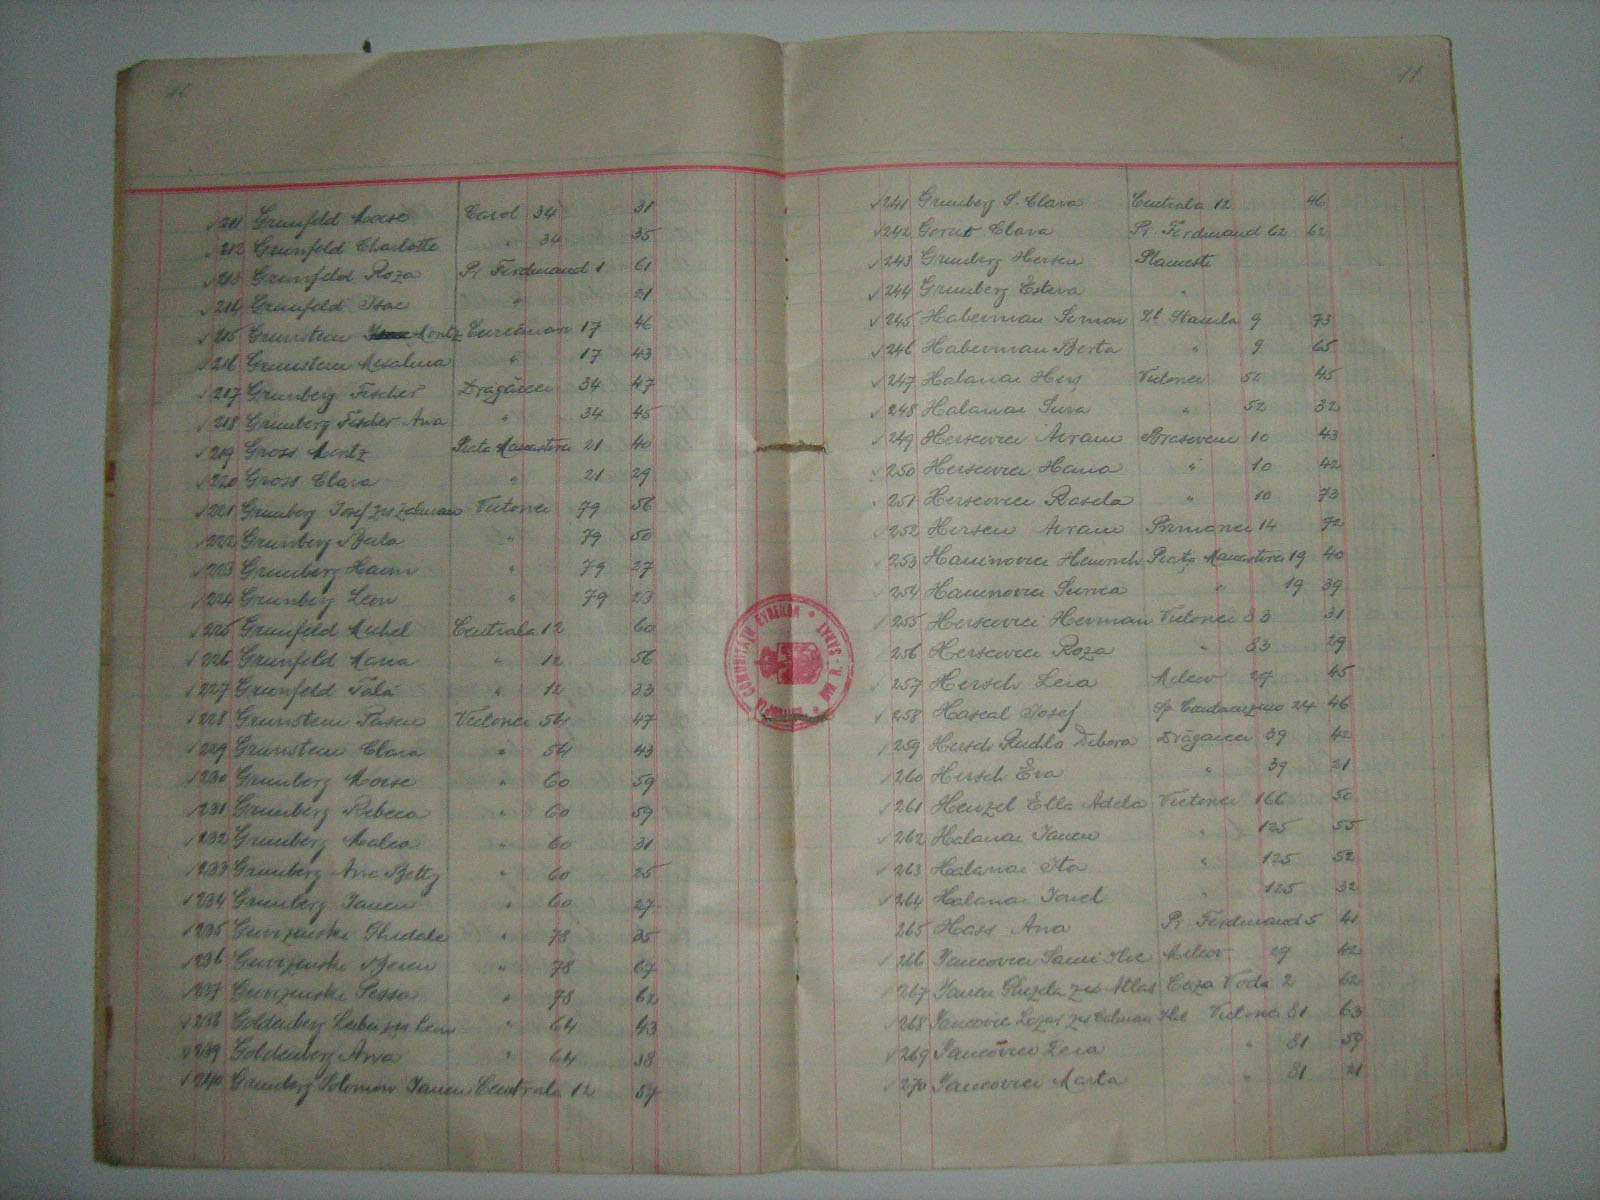 11
211 Grunfeld Moise Carol 34 31
212 Grunfeld Charlotte " 34 35
213 Grunfeld Roza Pr Ferdinand 1 61
214 Grunfeld Isac " 21
215 Grunstein Moritz 17 46
216 Grunstein " 17 43
217 Grunberg Fischer Dragaicei 34 47
218 Grunberg Fischer Ana " 34 45
219 Gross Moritz Piata 21 40
220 Gross Clara " 21 29
221 Grunberg Iosef zis Zelman Victoriei 79 56
222 Grunberg Berta " 79 50
223 Grunberg Haim " 79 27
224 Grunberg Leon " 79 23
225 Grunfeld Michel Centrala 12 60
226 Grunfeld Maria " 12 56
227 Grunfeld " 12 33
228 Grunstein Pascu Victoriei 54 47
229 Grunstein Clara " 54 43
230 Grunberg Moise " 60 59
231 Grunberg Rebeca " 60 59
232 Grunberg Malca " 60 31
233 Grunberg Ana Betty " 60 25
234 Grunberg Iancu " 60 27
235 Ghidale " 78 35
236 Bercu " 78 67
237 " 78 62
238 Goldenberg Leibu zis Leon " 64 43
239 Goldenberg Ana " 64 38
240 Grunberg Solomon Iancu Centrala 12 57
241 Grunberg S. Clara Centrala 12 46
242 Clara Pr. Ferdinand 62 62
243 Grunberg Herscu
244 Grunberg Estera "
245 Haberman Simon 9 73
246 Haberman Berta " 9 65
247 Halanai Hers Victoriei 45
248 Halanai Sura " 52 32
249 Herscovici Avram Brasoveni 10 43
250 Herscovici Hana " 10 42
251 Herscovici " 10 73
252 Herscu Avram Primariei 14 72
253 Haimovici Heinrich Piata 19 40
254 Haimovici " 19 39
255 Herscovici Herman Victoriei 83 31
256 Herscovici Roza " 83 29
257 Hersch Leia Milcov 27 45
258 Hascal Iosef Cantacuzino 24 46
259 Hersch Ruchla Debora Drăgaicei 39 42
260 Hersch Eva " 39 21
261 Ella Adela Victoriei 166 50
262 Halanai Iancu " 125 55
263 Halanai Ita " 125 52
264 Halanai Ionel " 125 32
265 Hass Ana Pr Ferdinand 5 41
266 Iancovici Sami Ilie Milcov 27 42
267 Iancu Ghizela zis Atlas Cuza Voda 2 62
268 Iancovici Lazar zis Calman Ilie Victoriei 81 63
269 Iancovici " 81 59
270 Iancovici Marta " 81 21